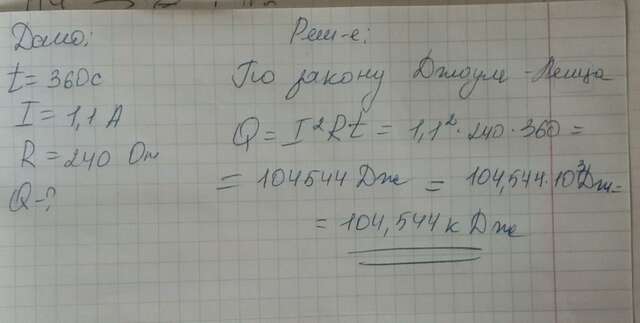 Дано:
t = 360с
I = 1,1 А
R = 240 Ом
Q - ?
Реш-е:
По закону Джоуля - Ленца
Q = I²Rt = 1,1² · 240 · 360 =
= 104544 Дж = 104,544 · 10³ Дж =
= 104,544 к Дж